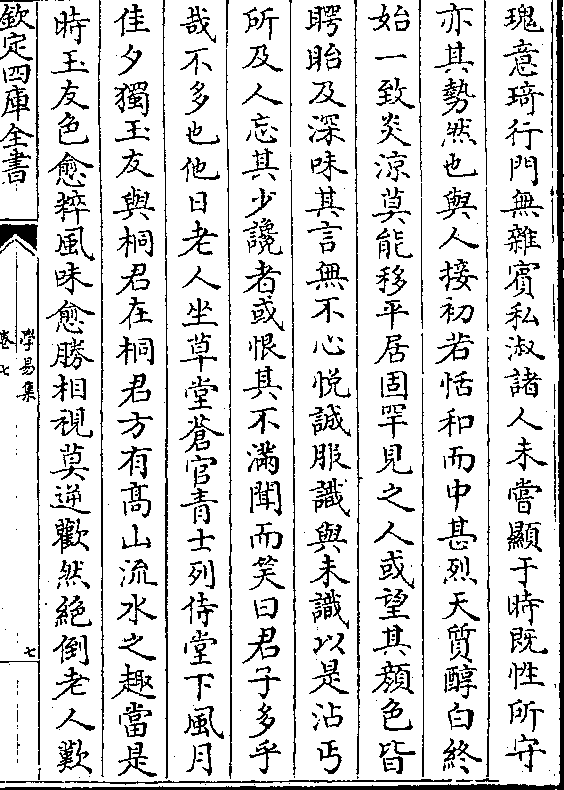 瑰意琦行門無雜賓私淑諸人未嘗顯于時既性所守
亦其勢然也與人接初若恬和而中甚烈天質醇白終
始一致炎涼莫能移平居固罕見之人或望其顔色皆
瞪眙及深味其言無不心悦誠服識與未識以是沾丐
所及人忘其少讒者或恨其不滿聞而笑曰君子多乎
哉不多也他日老人坐草堂蒼官青士列侍堂下風月
佳夕獨玉友與桐君在桐君方有髙山流水之趣當是
時玉友色愈粹風味愈勝相視莫逆歡然絶倒老人歎
欽定四庫全書
學易集
卷七
七